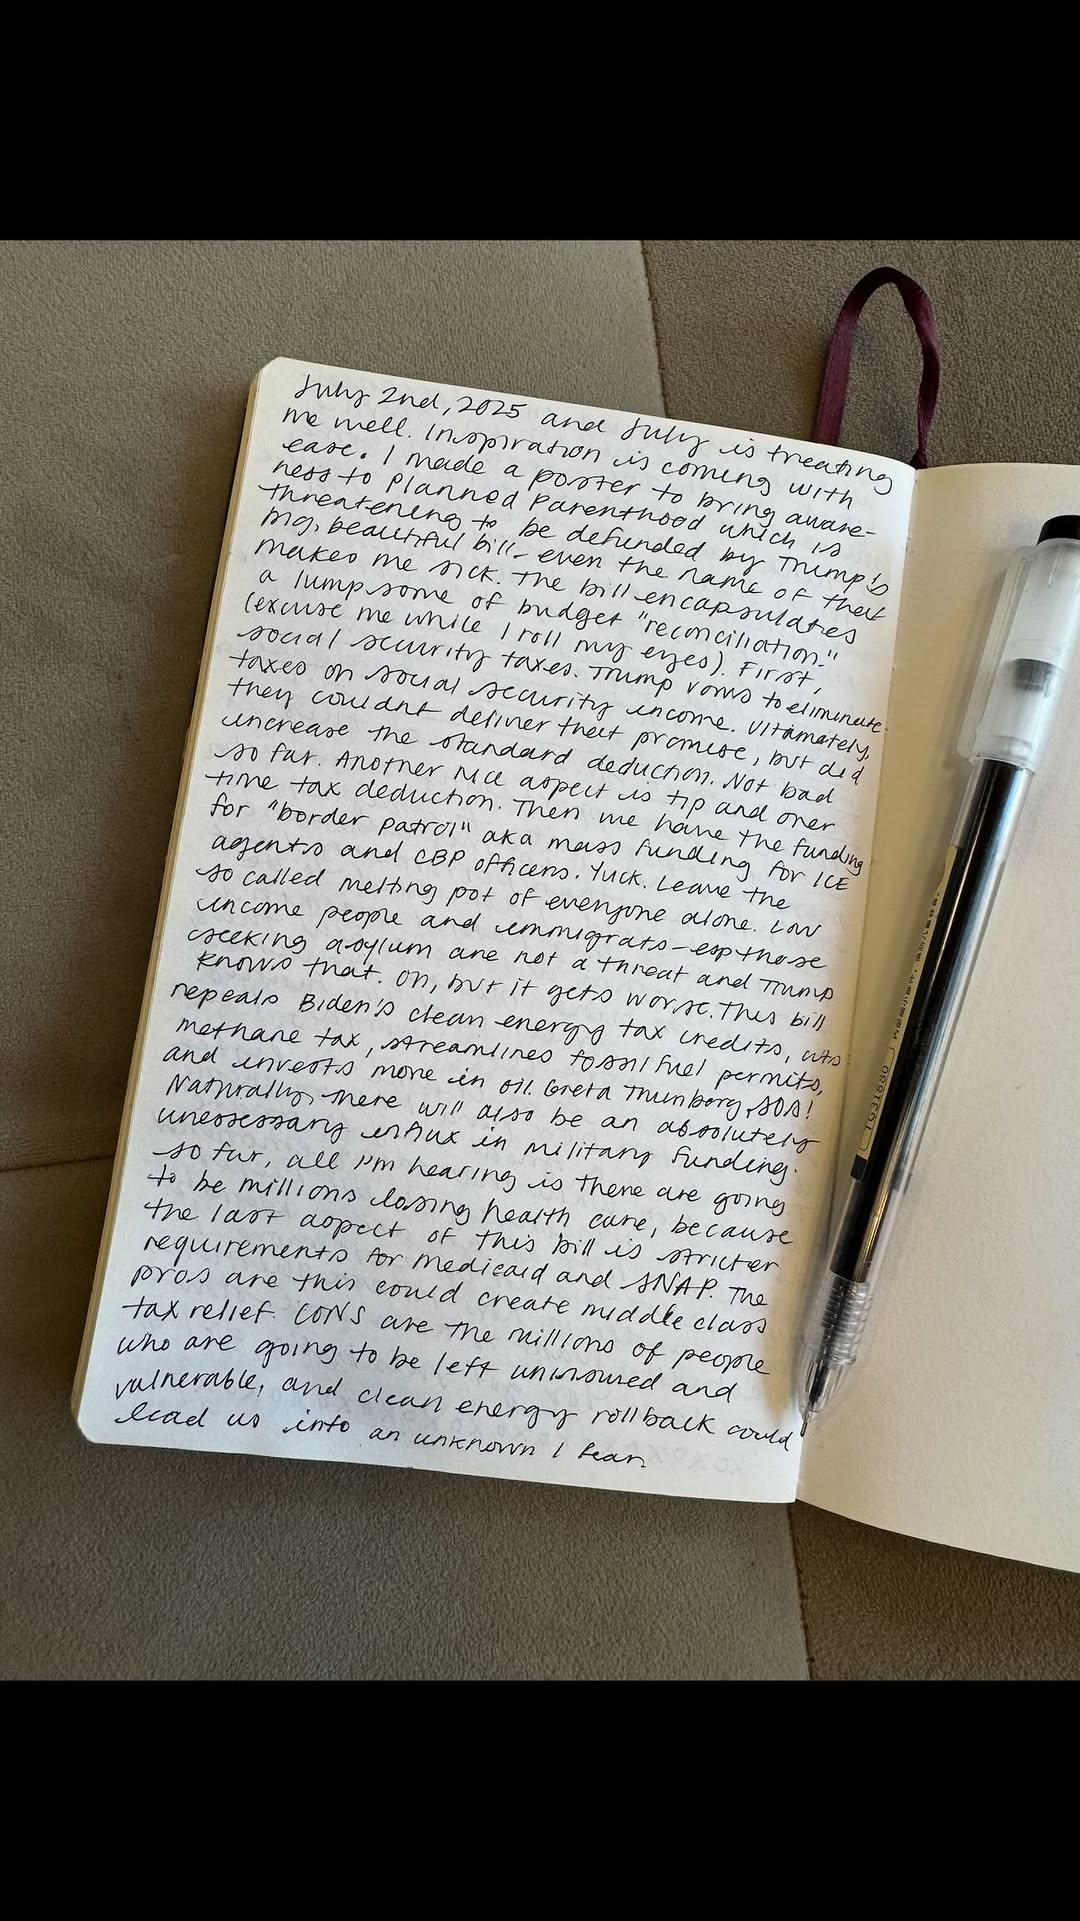 July 2nd, 2025 and July is treating
me well. Inspiration is coming with
ease. I made a poster to bring aware-
ness to Planned Parenthood which is
threatening to be defunded by Trump's
big, beautiful bill - even the name of that
makes me sick. The bill encapsulates
a lump some of budget "reconciliation."
(excuse me while I roll my eyes). First,
social security taxes. Trump vows to eliminate
taxes on social security income. Ultimately,
they couldnt deliver that promise, but did
increase the standard deduction. Not bad
so far. Another nice aspect is tip and over
time tax deduction. Then we have the funding
for "border patrol" aka mass funding for ICE
agents and CBP officers. Yuck. Leave the
so called melting pot of everyone alone. Low
income people and immigrats - esp those
seeking asylum are not a threat and Trump
knows that. Oh, but it gets worse. This bill
repeals Biden's clean energy tax credits, cuts
methane tax, streamlines fossil fuel permits,
and invests more in oil. Greta Thunberg, SOS!
Naturally, there will also be an absolutely
unessessary influx in military funding.
So far, all I'm hearing is there are going
to be millions losing health care, because
the last aspect of this bill is stricter
requirements for medicaid and SNAP. The
pros are this could create middle class
tax relief. CONS are the millions of people
who are going to be left uninsured and
vulnerable, and clean energy rollback could
lead us into an unknown I fear.
TG31880